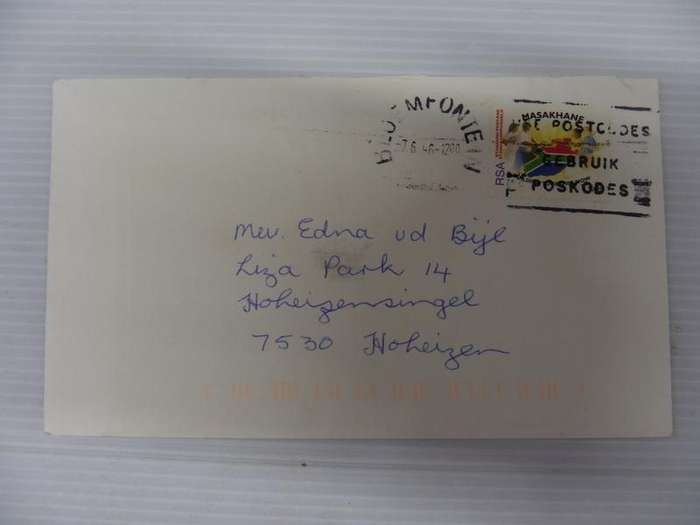 BLOEMFONTEIN
MASAKHANE
USE POSTCODES
GEBRUIK
POSKODES
RSA
Mev. Edna vd Bijl
Liza Park 14
Hoheizensingel
7530 Hoheizen